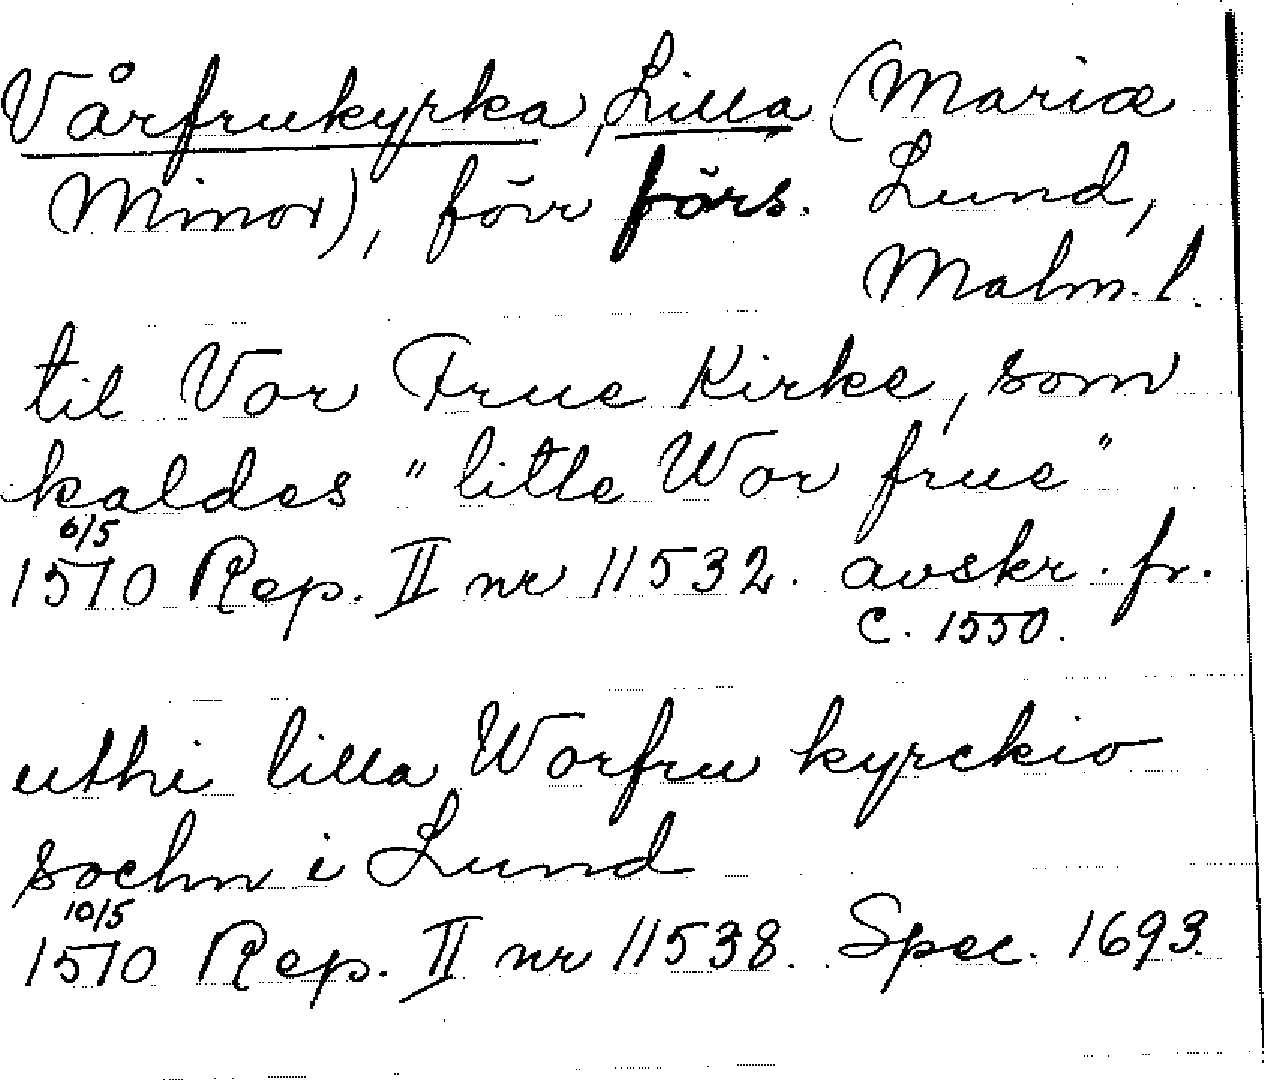 Vårfrukyrka, Lilla (Mariæ
Minor), förr förs. Lund,
Malm. l.
til Vor Frue Kirke, som
kaldes "litle Wor frue"
6/5
1510 Rep. II nr 11532. avskr. fr.
c. 1550.
uthi lilla Worfru kyrckio
sochn i Lund
10/5
1510 Rep. II nr 11538. Spec. 1693.